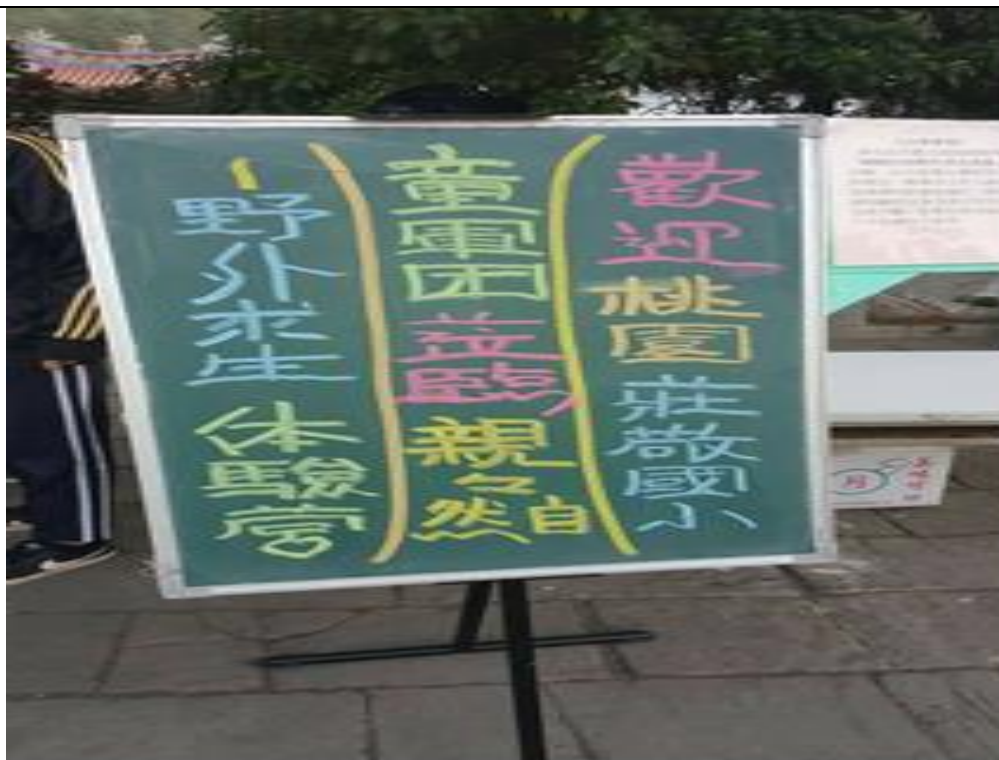 歡迎桃園莊敬國小
童軍团蒞臨親々自然
|野外求生体驗營
月